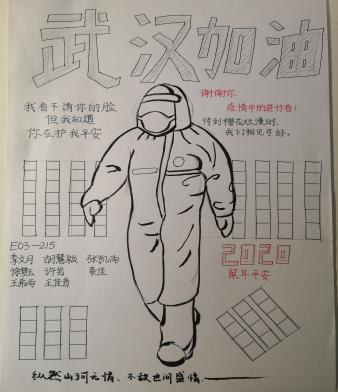 武汉加油
我看不清你的脸
但我知道
你在护我平安
谢谢你
疫情中的逆行者!
待到樱花烂漫时,
我们相见可好。
E03-215
李文月 胡慧颖 张凯雨
许岩 袁佳
王希雨 王佳音
2020
鼠年平安
纵然山河无情、不敌世间盛情.